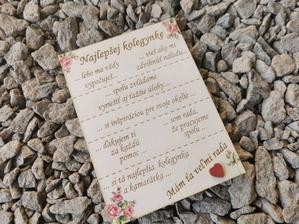 Najlepšej kolegynke
lebo ma vždy vypočuješ...
vieš ako mi zdvihnúť náladu...
... spolu zvládame
vyriešiť aj ťažké úlohy ...
... si inšpiráciou pre svoje okolie ...
... ďakujem ti za každú pomoc ...
... som rada, že pracujeme spolu ...
... si tá najlepšia kolegynka
a kamarátka ...
Mám ťa veľmi rada